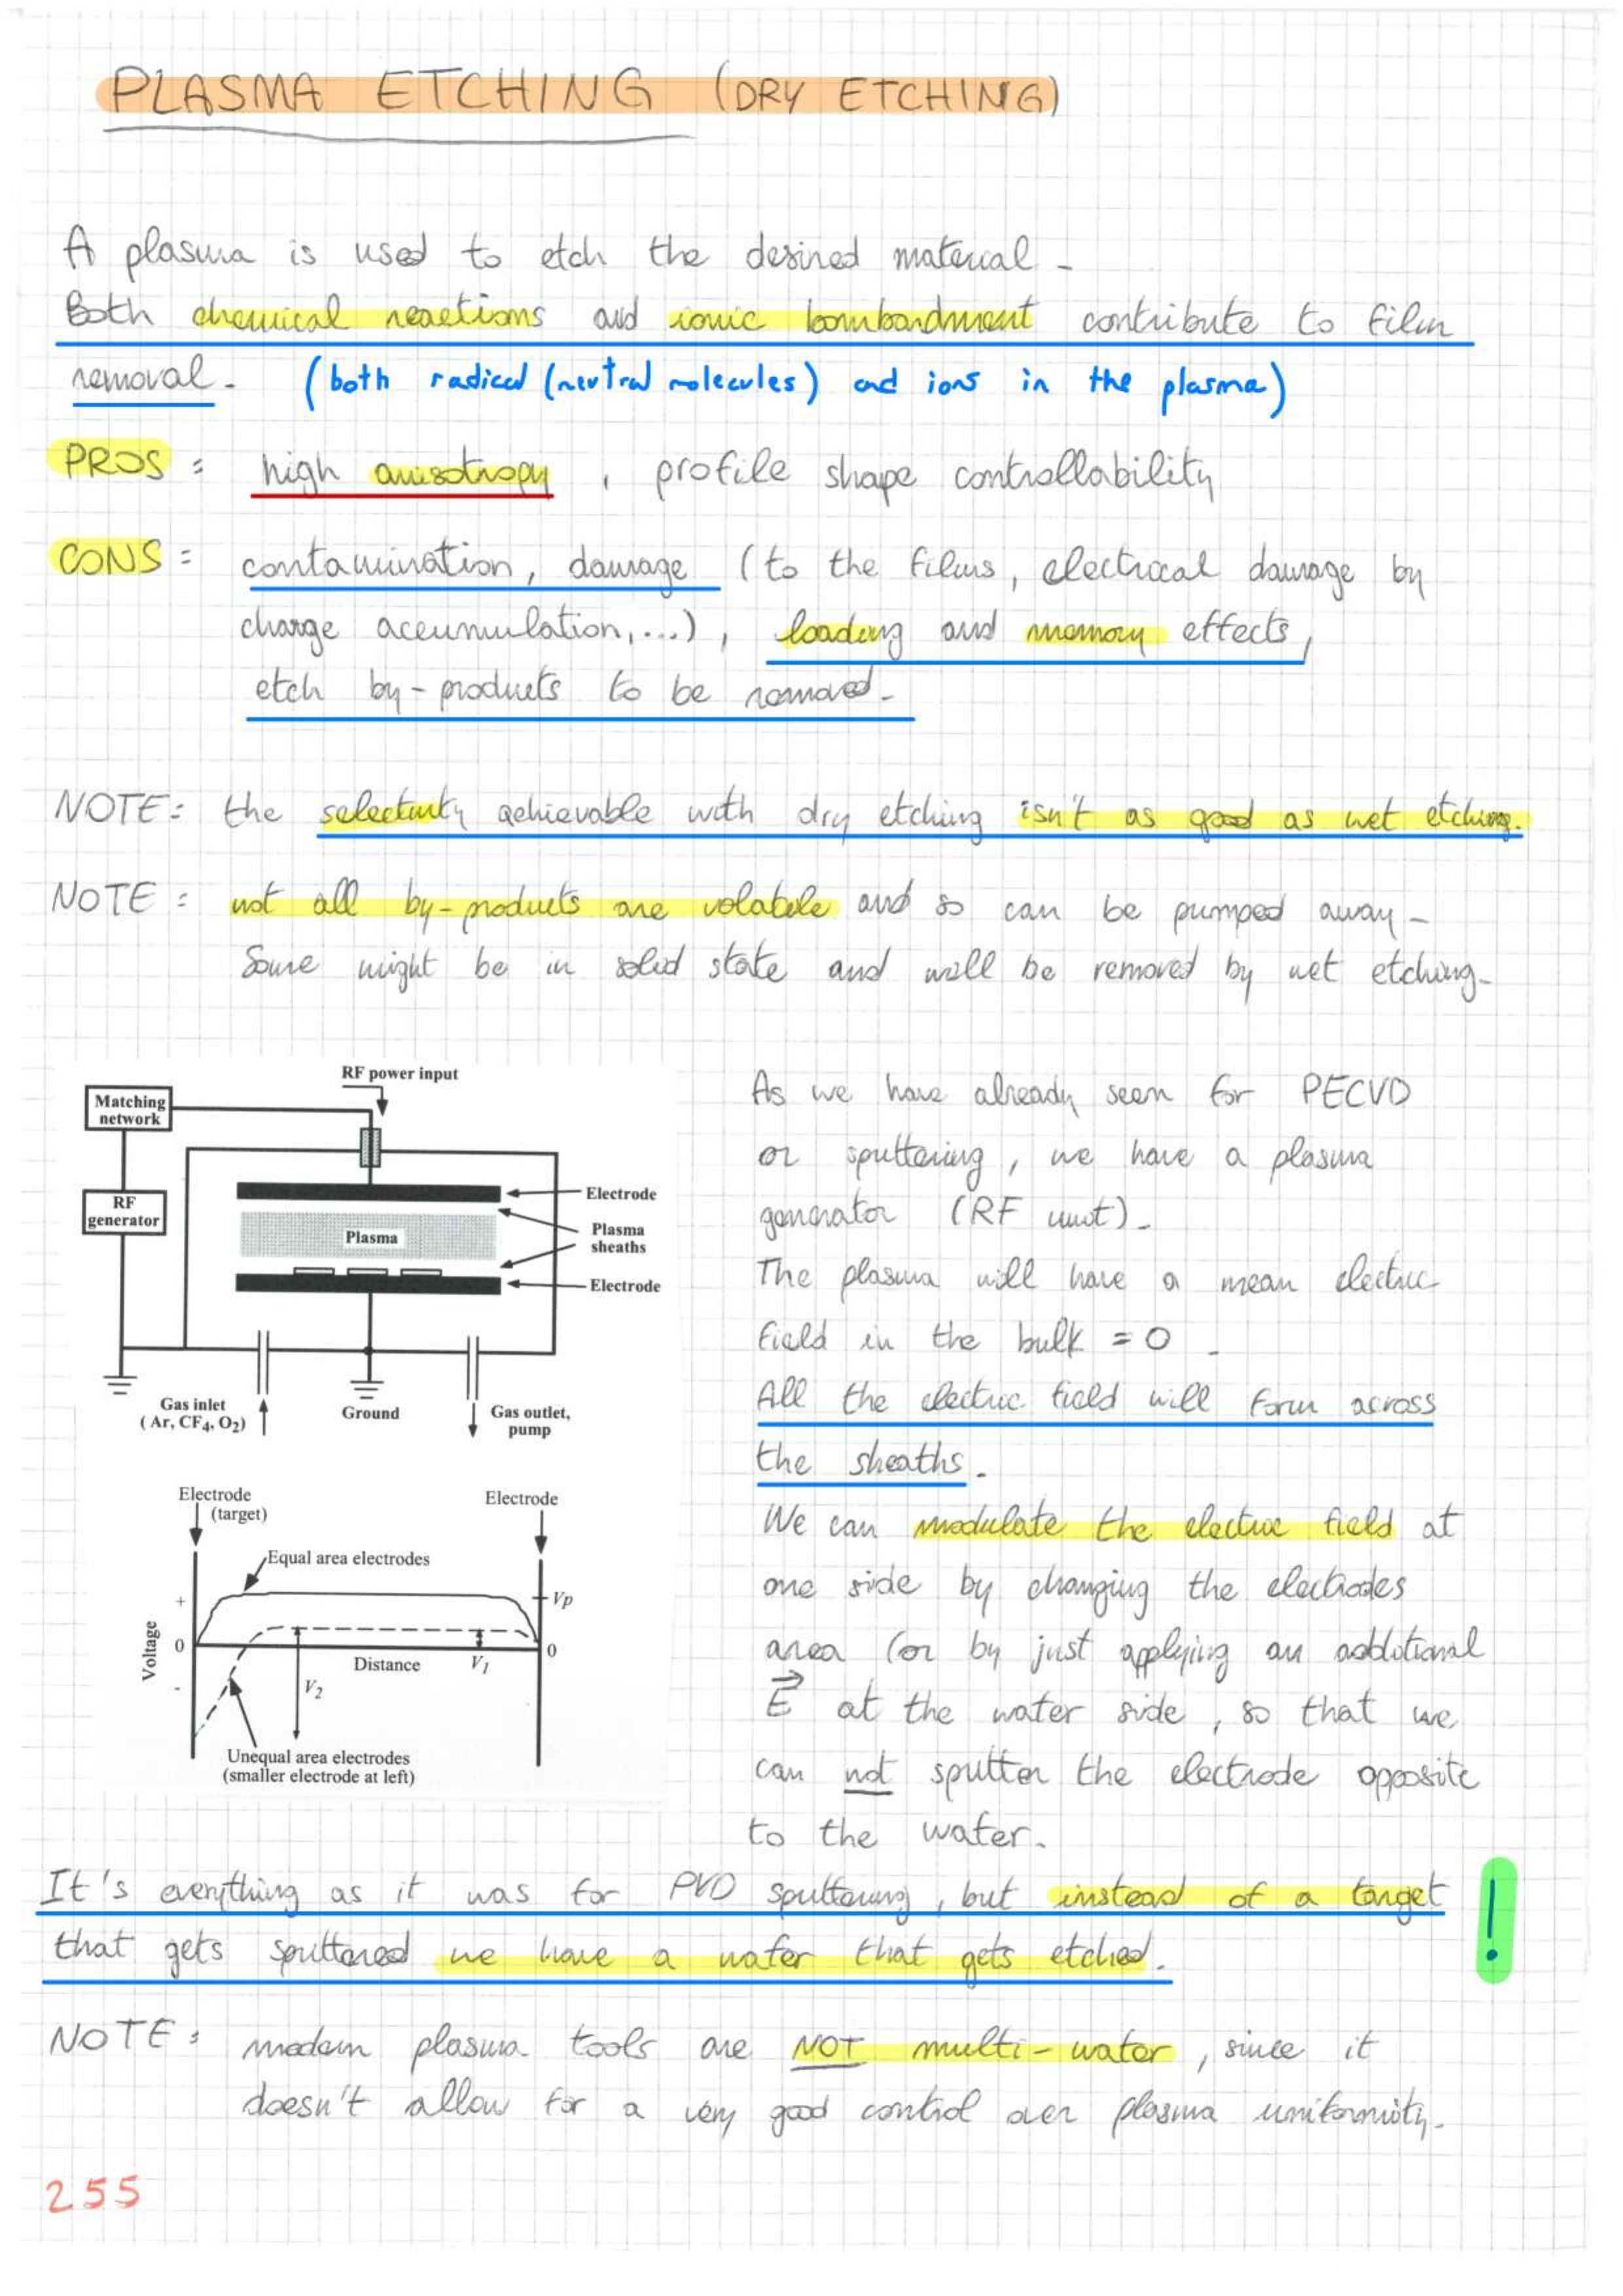 PLASMA ETCHING (DRY ETCHING)
A plasma is used to etch the desired material.
Both chemical reactions and ionic bombardment contribute to film
removal. (both radical (neutral molecules) and ions in the plasma)
PROS: high anisotropy, profile shape controllability
CONS: contamination, damage (to the films, electrical damage by
charge accumulation,...), loading and memory effects,
etch by-products to be removed.
NOTE: the selectivity achievable with dry etching isn't as good as wet etching.
NOTE: not all by-products are volatile and so can be pumped away.
Some might be in solid state and will be removed by wet etching.
RF power input
Matching
network
RF
generator
Electrode
Plasma
Plasma
sheaths
Electrode
Gas inlet
(Ar, CF4, O2)
Ground
Gas outlet,
pump
Electrode
(target)
Electrode
Equal area electrodes
+
Vp
Voltage
0
0
Distance
V1
-
V2
Unequal area electrodes
(smaller electrode at left)
As we have already seen for PECVD
or sputtering, we have a plasma
generator (RF unit).
The plasma will have a mean electric
field in the bulk = 0.
All the electric field will form across
the sheaths.
We can modulate the electric field at
one side by changing the electrodes
area (or by just applying an additional
E⃗ at the wafer side, so that we
can not sputter the electrode opposite
to the wafer.
It's everything as it was for PVD sputtering, but instead of a target
that gets sputtered we have a wafer that gets etched. !
NOTE: modern plasma tools are NOT multi-wafer, since it
doesn't allow for a very good control over plasma uniformity.
255